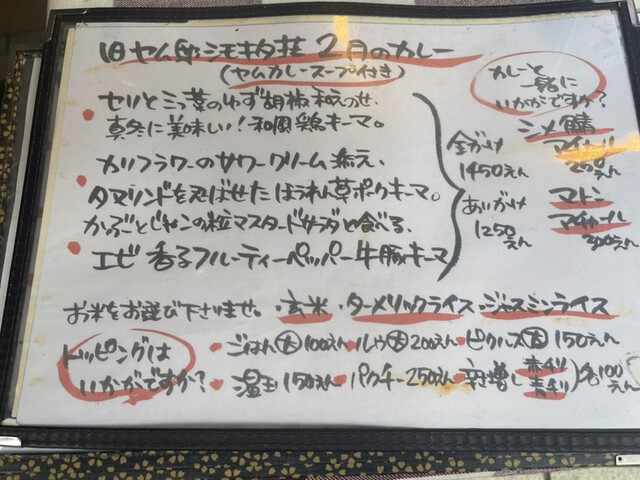 旧ヤム邸シモキタ荘 2月のカレー
(ヤムカレースープ付き)
・セリと三つ葉のゆず胡椒和えのせ、
真冬に美味しい!和風鶏キーマ。
・カリフラワーのサワークリーム添え、
タマリンドを忍ばせたほうれん草ポークキーマ。
・かぶとじゃこの粒マスタードサブジと食べる、
エビ香るフルーティーペッパー牛豚キーマ
全がけ
1450えん
あいがけ
1250えん
カレーと
一緒に
いかがですか?
シメ鯖
アチャール
マトン
アチャール
300えん
お米をお選び下さいませ。・玄米・ターメリックライス・ジャスミンライス
トッピングは
いかがですか?
・ごはん大100えん・ルゥ大200えん・ピクルス大150えん
・温玉150えん・パクチー250えん・辛増し 赤チリ 青チリ)各100えん